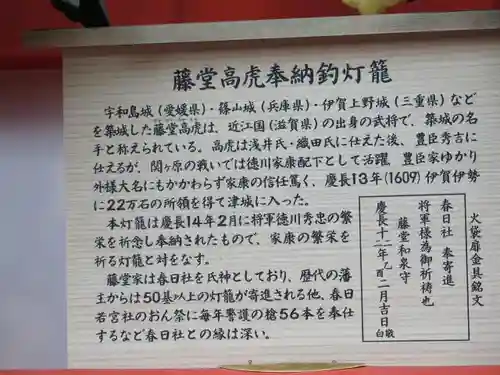 藤堂高虎奉納釣灯籠
宇和島城(愛媛県)・篠山城(兵庫県)・伊賀上野城(三重県)など
を築城した藤堂高虎は、近江国(滋賀県)の出身の武将で、築城の名
手と称えられている。高虎は浅井氏・織田氏に仕えた後、豊臣秀吉に
仕えるが、関ヶ原の戦いでは徳川家康配下として活躍、豊臣家ゆかり
外様大名にもかかわらず家康の信任篤く、慶長13年(1609)伊賀伊勢
に22万石の所領を得て津城に入った。
本灯籠は慶長14年2月に将軍徳川秀忠の繁
栄を祈念し奉納されたもので、家康の繁栄を
祈る灯籠と対をなす。
藤堂家は春日社を氏神としており、歴代の藩
主からは50基以上の灯籠が寄進される他、春日
若宮社のおん祭に毎年警護の槍56本を奉仕
するなど春日社との縁は深い。
火袋扉金具銘文
春日社 奉寄進
将軍様為御祈祷也
藤堂和泉守
慶長十二年 二月吉日